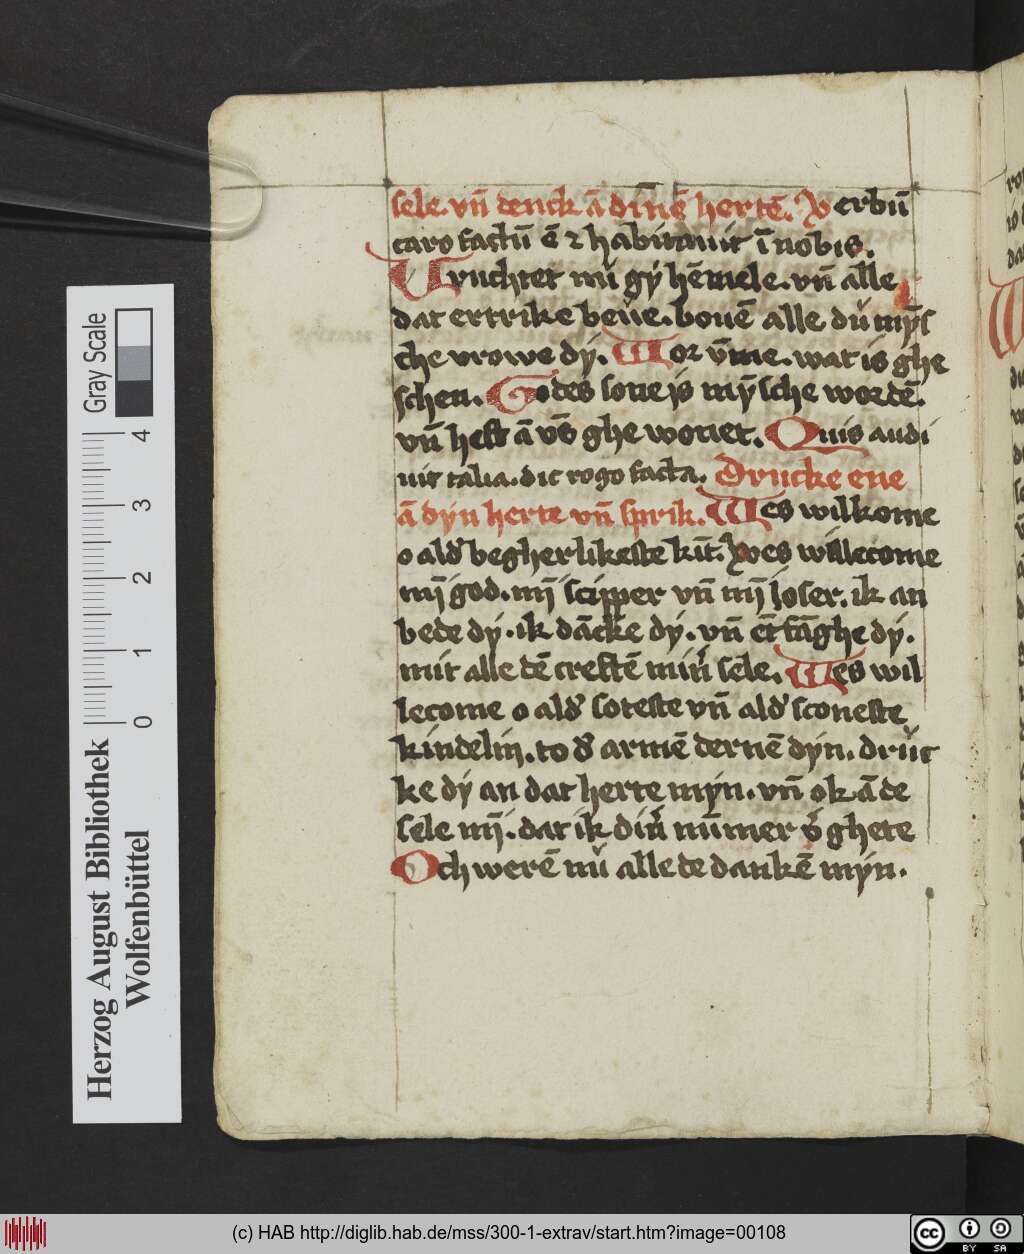 sele. vn̄ denck ā dinē hertē. Verbū
caro factū ē ⁊ habitauit ī nobis.
Vruchtet mi gy hēmele. vn̄ alle
dat ertrike beue. bouē alle dū mȳs
che vrowe dy. Wor v̄me. wat is ghe
schen. Godes sone is mȳsche wordē.
vn̄ heft ā vs̄ ghe wonet. Quis audi
uit talia. dic rogo facta. Drucke ene
ā dyn herte vn̄ sprik. Wes wilkome
o alď begherlikeste kīt. Wes willecome
mȳ god. mȳ scipper vn̄ mȳ loser. ik an
bede dy. ik dācke dy. vn̄ ēt fāghe dy.
mit alle dē creftē min̄ sele. Wes wil
lecome o alď soteste vn̄ alď sconeste
kindelin. to ď armē dernē dyn. druc
ke dy an dat herte myn. vn̄ ok ā de
sele mȳ. dat ik din̄ nūmer v̄ghete
Och werē nu alle de dankē myn.
Gray Scale
0 1 2 3 4
Herzog August Bibliothek
Wolfenbüttel
(c) HAB http://diglib.hab.de/mss/300-1-extrav/start.htm?image=00108
cc BY SA